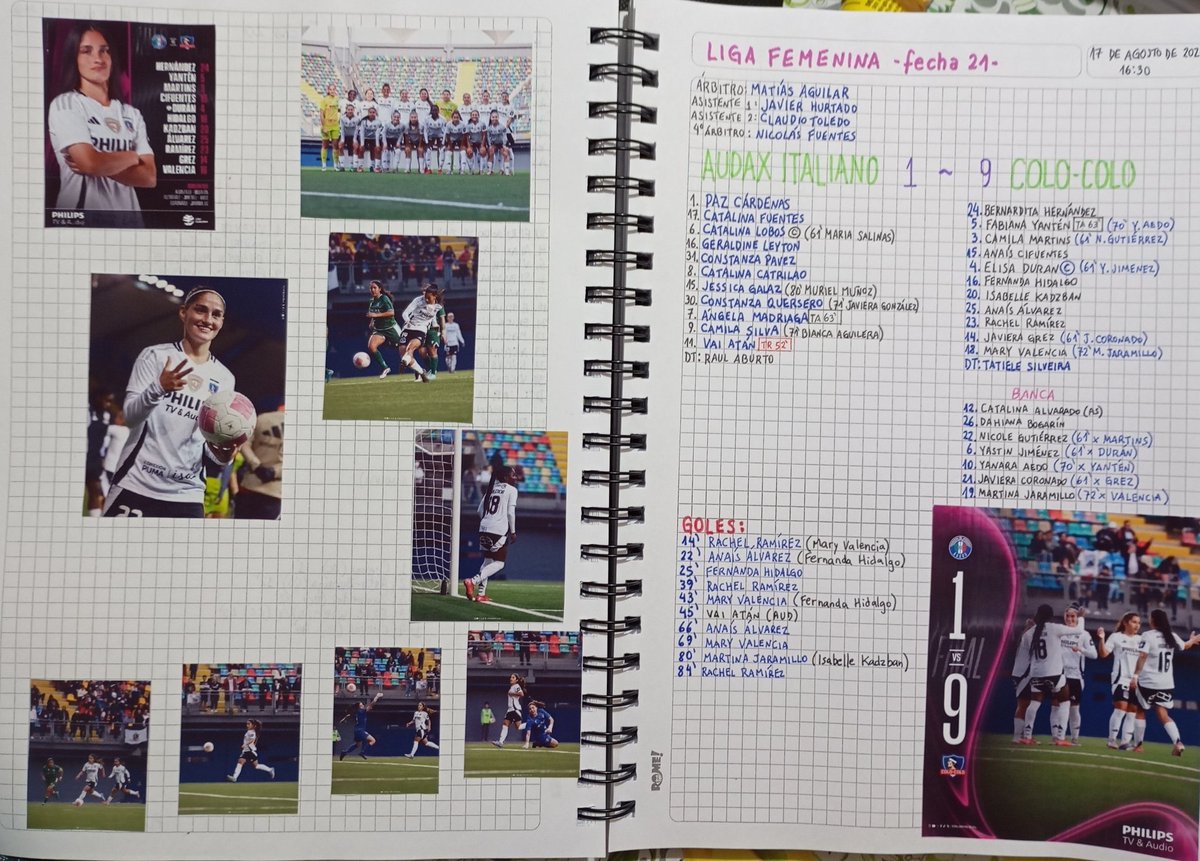 HERNÁNDEZ 24
YANTÉN 5
MARTINS 3
CIFUENTES 15
DURÁN 4
HIDALGO 16
KADZBAN 20
ÁLVAREZ 25
RAMÍREZ 23
GREZ 14
VALENCIA 18
PHILIPS
TV & Audio
PHILIPS
TV & Audio
PUMA
18
LIGA FEMENINA -fecha 21-
17 DE AGOSTO DE 202
16:30
ÁRBITRO: MATÍAS AGUILAR
ASISTENTE 1: JAVIER HURTADO
ASISTENTE 2: CLAUDIO TOLEDO
4º ÁRBITRO: NICOLÁS FUENTES
AUDAX ITALIANO 1 ~ 9 COLO-COLO
1. PAZ CÁRDENAS
17. CATALINA FUENTES
6. CATALINA LOBOS © (61' MARIA SALINAS)
16. GERALDINE LEYTON
31. CONSTANZA PAVEZ
8. CATALINA CATRILAO
15. JESSICA GALAZ (80' MURIEL MUÑOZ)
30. CONSTANZA QUERSERO (71' JAVIERA GONZÁLEZ)
7. ÁNGELA MADRIAGA TA 63'
9. CAMILA SILVA (79' BIANCA AGUILERA)
11. VAI ATÁN TR 52'
DT: RAUL ABURTO
24. BERNARDITA HERNÁNDEZ
5. FABIANA YANTÉN TA 63' (70' Y. AEDO)
3. CAMILA MARTINS (61' N. GUTIÉRREZ)
15. ANAÍS CIFUENTES
4. ELISA DURAN © (61' Y. JIMÉNEZ)
16. FERNANDA HIDALGO
20. ISABELLE KADZBAN
25. ANAÍS ÁLVAREZ
23. RACHEL RAMÍREZ
14. JAVIERA GREZ (61' J. CORONADO)
18. MARY VALENCIA (72' M. JARAMILLO)
DT: TATIELE SILVEIRA
BANCA
12. CATALINA ALVARADO (AS)
26. DAHIANA BOGARÍN
22. NICOLE GUTIÉRREZ (61' x MARTINS)
6. YASTIN JIMÉNEZ (61' x DURÁN)
10. YANARA AEDO (70' x YANTÉN)
21. JAVIERA CORONADO (61' x GREZ)
19. MARTINA JARAMILLO (72' x VALENCIA)
GOLES:
14' RACHEL RAMÍREZ (Mary Valencia)
22' ANAÍS ÁLVAREZ (Fernanda Hidalgo)
25' FERNANDA HIDALGO
39' RACHEL RAMÍREZ
43' MARY VALENCIA (Fernanda Hidalgo)
45' VAI ATÁN (AUD)
66' ANAÍS ÁLVAREZ
69' MARY VALENCIA
80' MARTINA JARAMILLO (Isabelle Kadzban)
84' RACHEL RAMÍREZ
1
VS
9
COLO-COLO
18
16
PHILIPS
TV & Audio